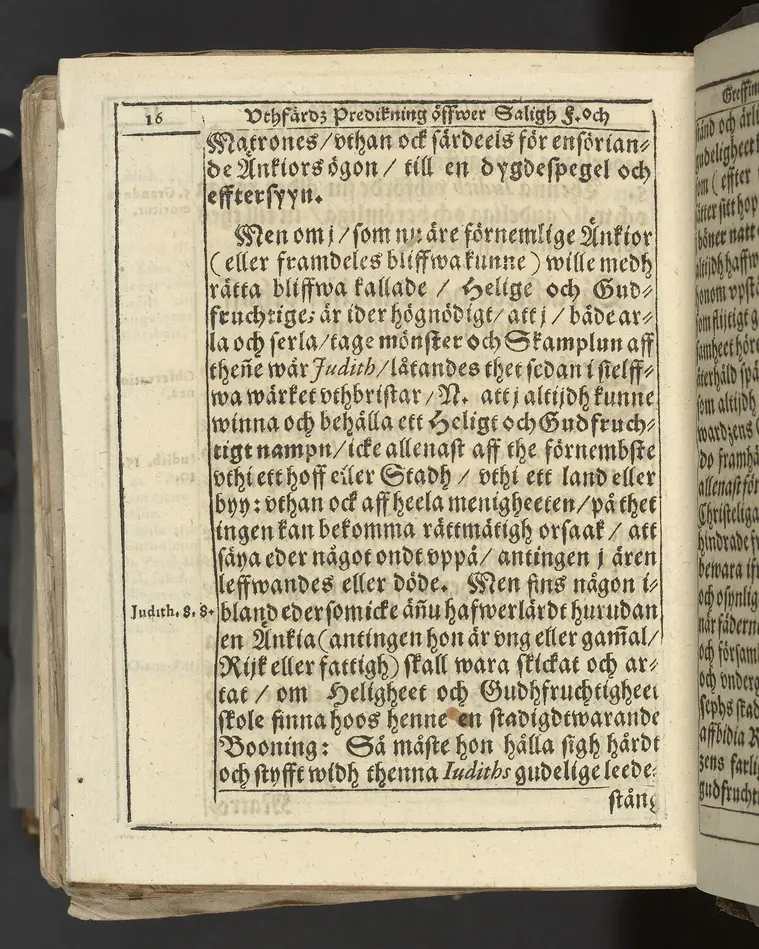 16 Vthfärdz Predikning öffwer Saligh F. och
Matrones/ vthan ock särdeels för ensörian⸗
de Änkiors ögon/ till en dygdespegel och
efftersyyn.
Men om j/ som nu äre förnemlige Änkior
(eller framdeles bliffwa kunne) wille medh
rätta bliffwa kallade / Helige och Gud⸗
fruchtige; är ider högnödigt/ att j / både ar⸗
la och serla/ tage mönster och Skamplun aff
theñe wår Judith/ låtandes thet sedan i sielff⸗
wa wärket vthbristar/ N. att j altijdh kunne
winna och behålla ett Heligt och Gudfruch⸗
tigt nampn/ icke allenast aff the förnembste
vthi ett hoff eller Stadh / vthi ett land eller
byy: vthan ock aff heela menigheeten/ på thet
ingen kan bekomma rättmätigh orsaak / att
säya eder något ondt vppå/ antingen j ären
leffwandes eller döde. Men fins någon i⸗
Judith. 8. 8.
bland eder som icke äñu hafwer lärdt hurudan
en Änkia (antingen hon är vng eller gam̃al/
Rijk eller fattigh) skall wara skickat och ar⸗
tat / om Heligheet och Gudhfruchtigheet
skole finna hoos henne en stadigdtwarande
Booning: Så måste hon hålla sigh hårdt
och styfft widh thenna Iudiths gudelige leede⸗
stång
Greffin
ständ och ärli
gudeligheet
böner natt
altijdh haffw
som altijdh
do framhä
allenast för
Christeliga
hindrade
bewara
och osynlig
när fäderne
och försam
och vnder
sephs stad
zens farli
gudfrucht